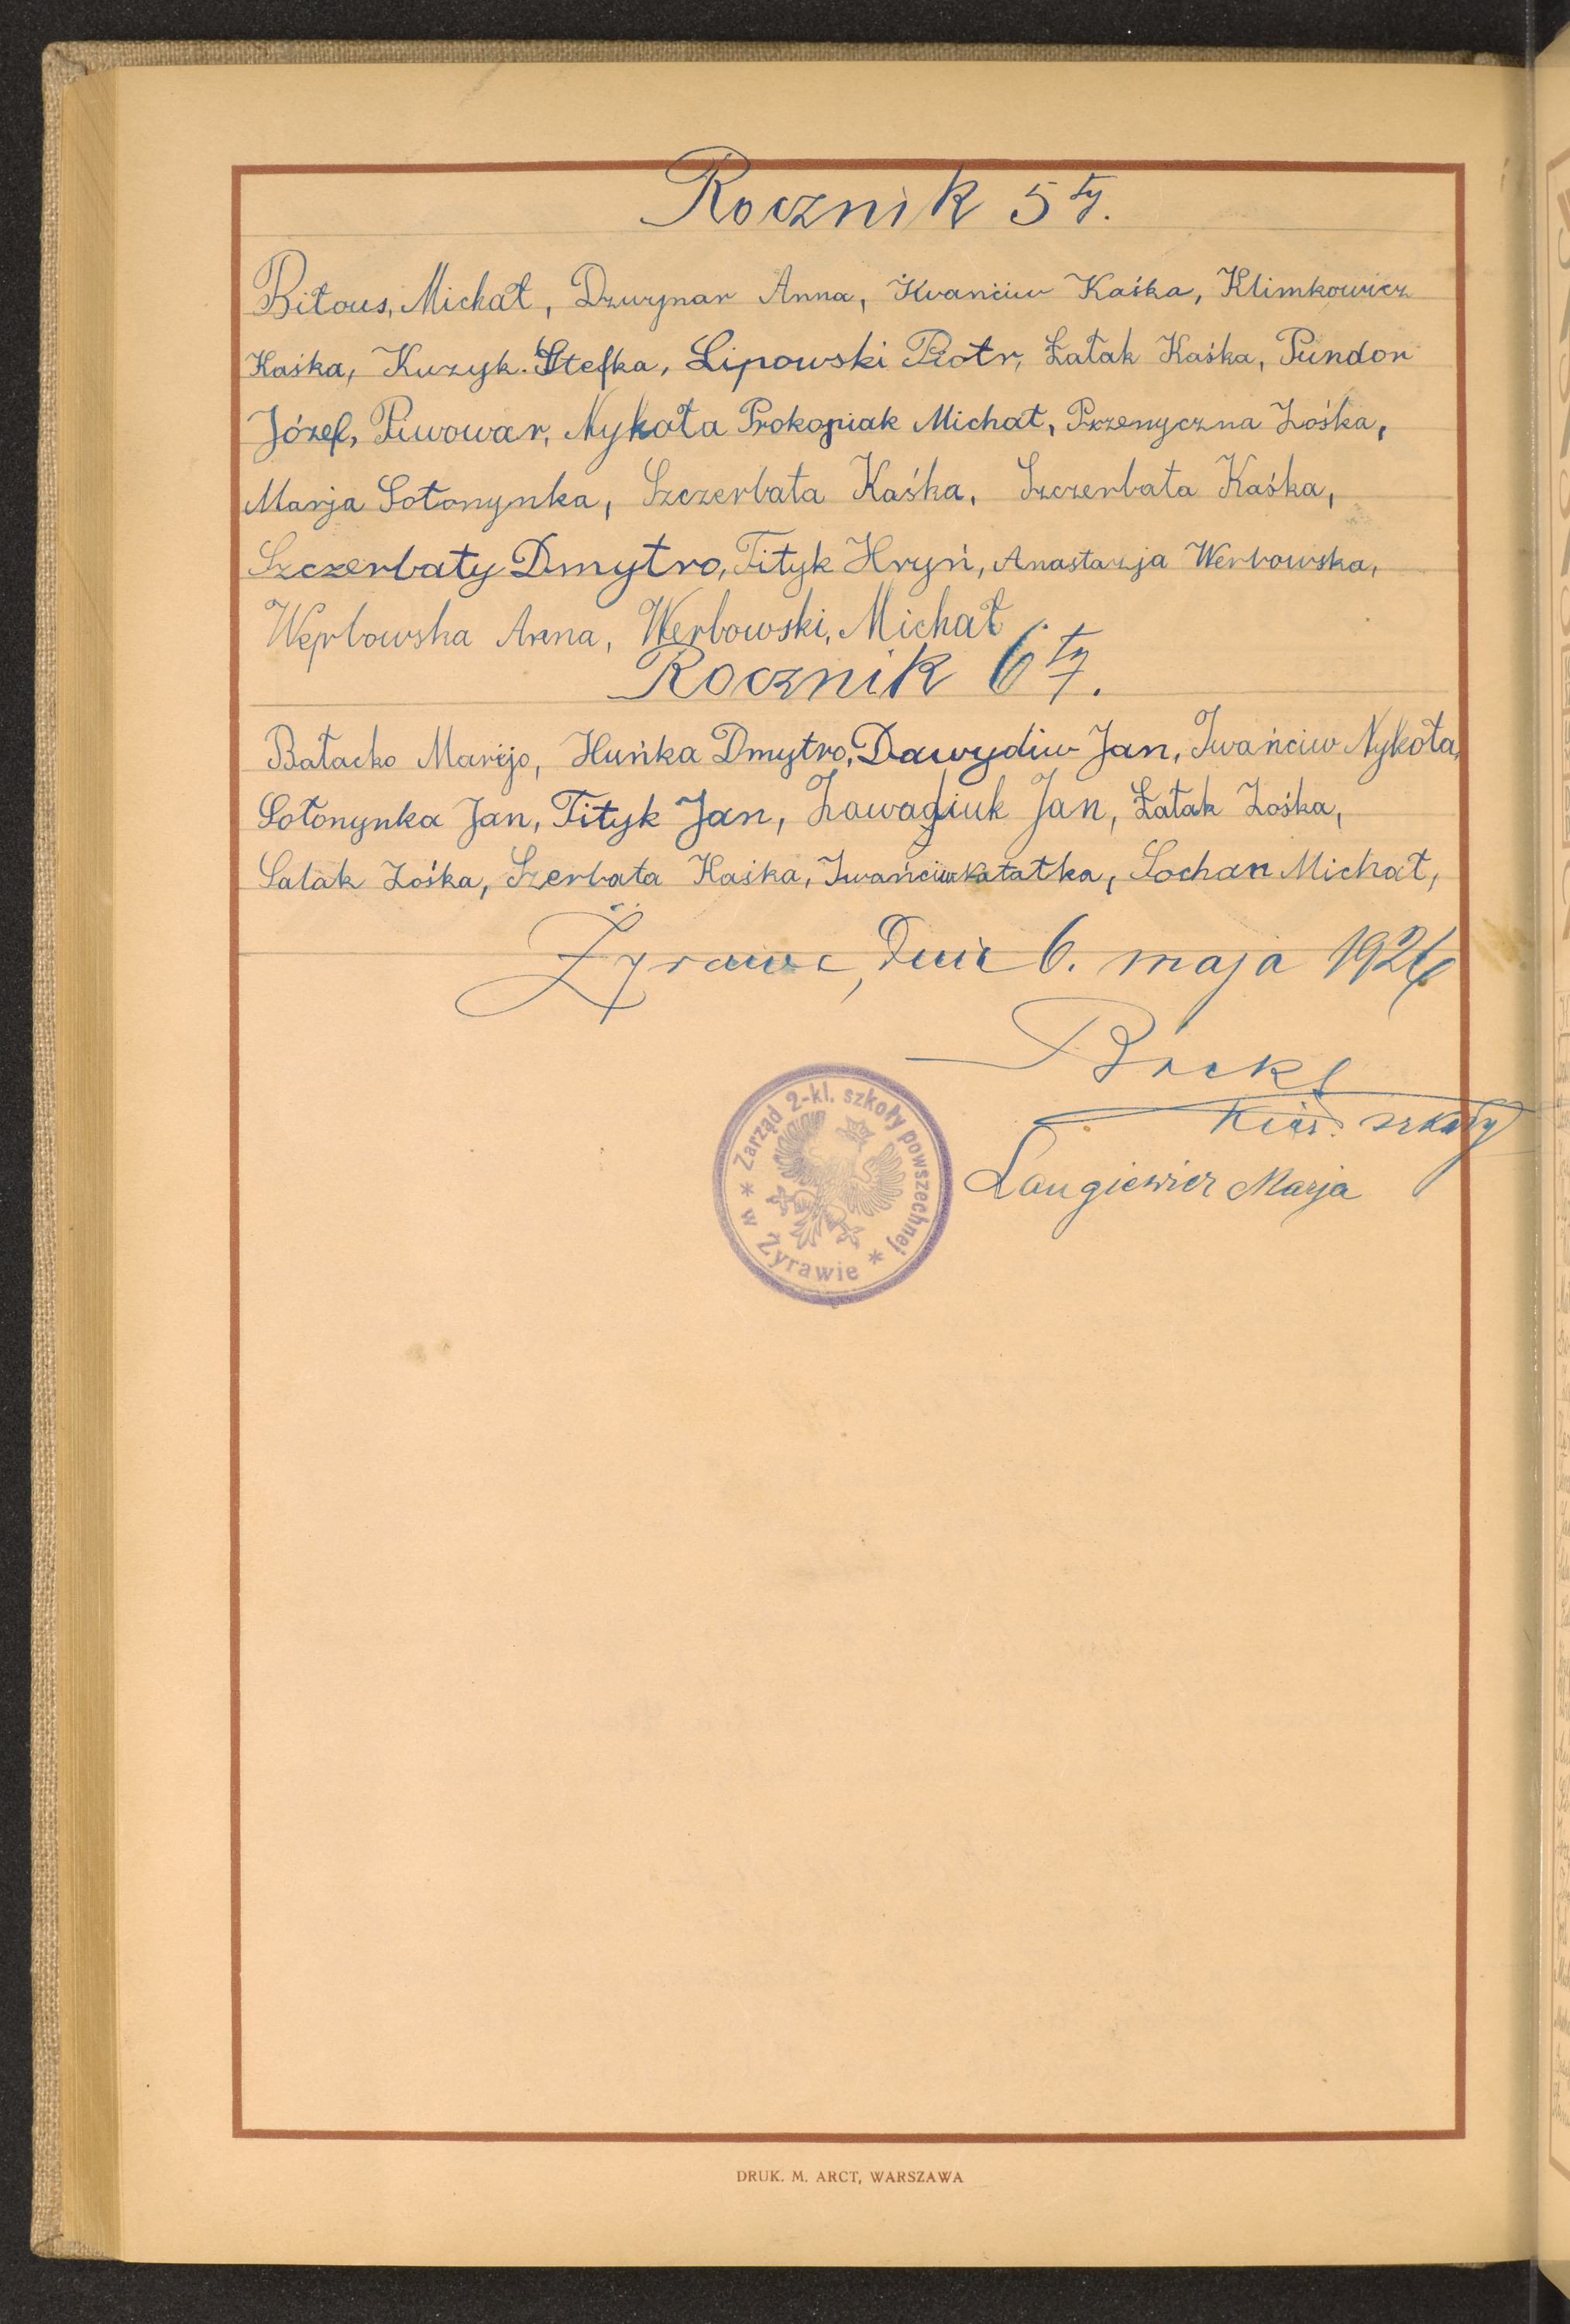 Rocznik 5ty.
Biłous, Michał, Dzwynar Anna, Iwańciw Kaśka, Klimkowicz
Kaśka, Kuzyk. Stefka, Lipowski Piotr, Łatak Kaśka, Pundor
Józef, Piwowar, Nykoła Prokopiak Michał, Przenyczna Zośka,
Marja Sołonynka, Szczerbata Kaśka, Szczerbata Kaśka,
Szczerbaty Dmytro, Tityk Hryń, Anastazja Werbowska,
Werbowska Anna, Werbowski, Michał
Rocznik 6ty.
Bałacko Marijo, Huńka Dmytro, Dawydiw Jan, Iwańciw Nykoła,
Sołonynka Jan, Tityk Jan, Zawadiuk Jan, Łatak Zośka,
Salak Zośka, Szerbata Kaśka, Iwańciw Katatka, Sochan Michał,
Żyrawa, Dnia 6. maja 1926
Kier. szkoły
Langiewicz Marja
Zarząd 2-kl. szkoły powszechnej
* w Żyrawie *
DRUK. M. ARCT, WARSZAWA